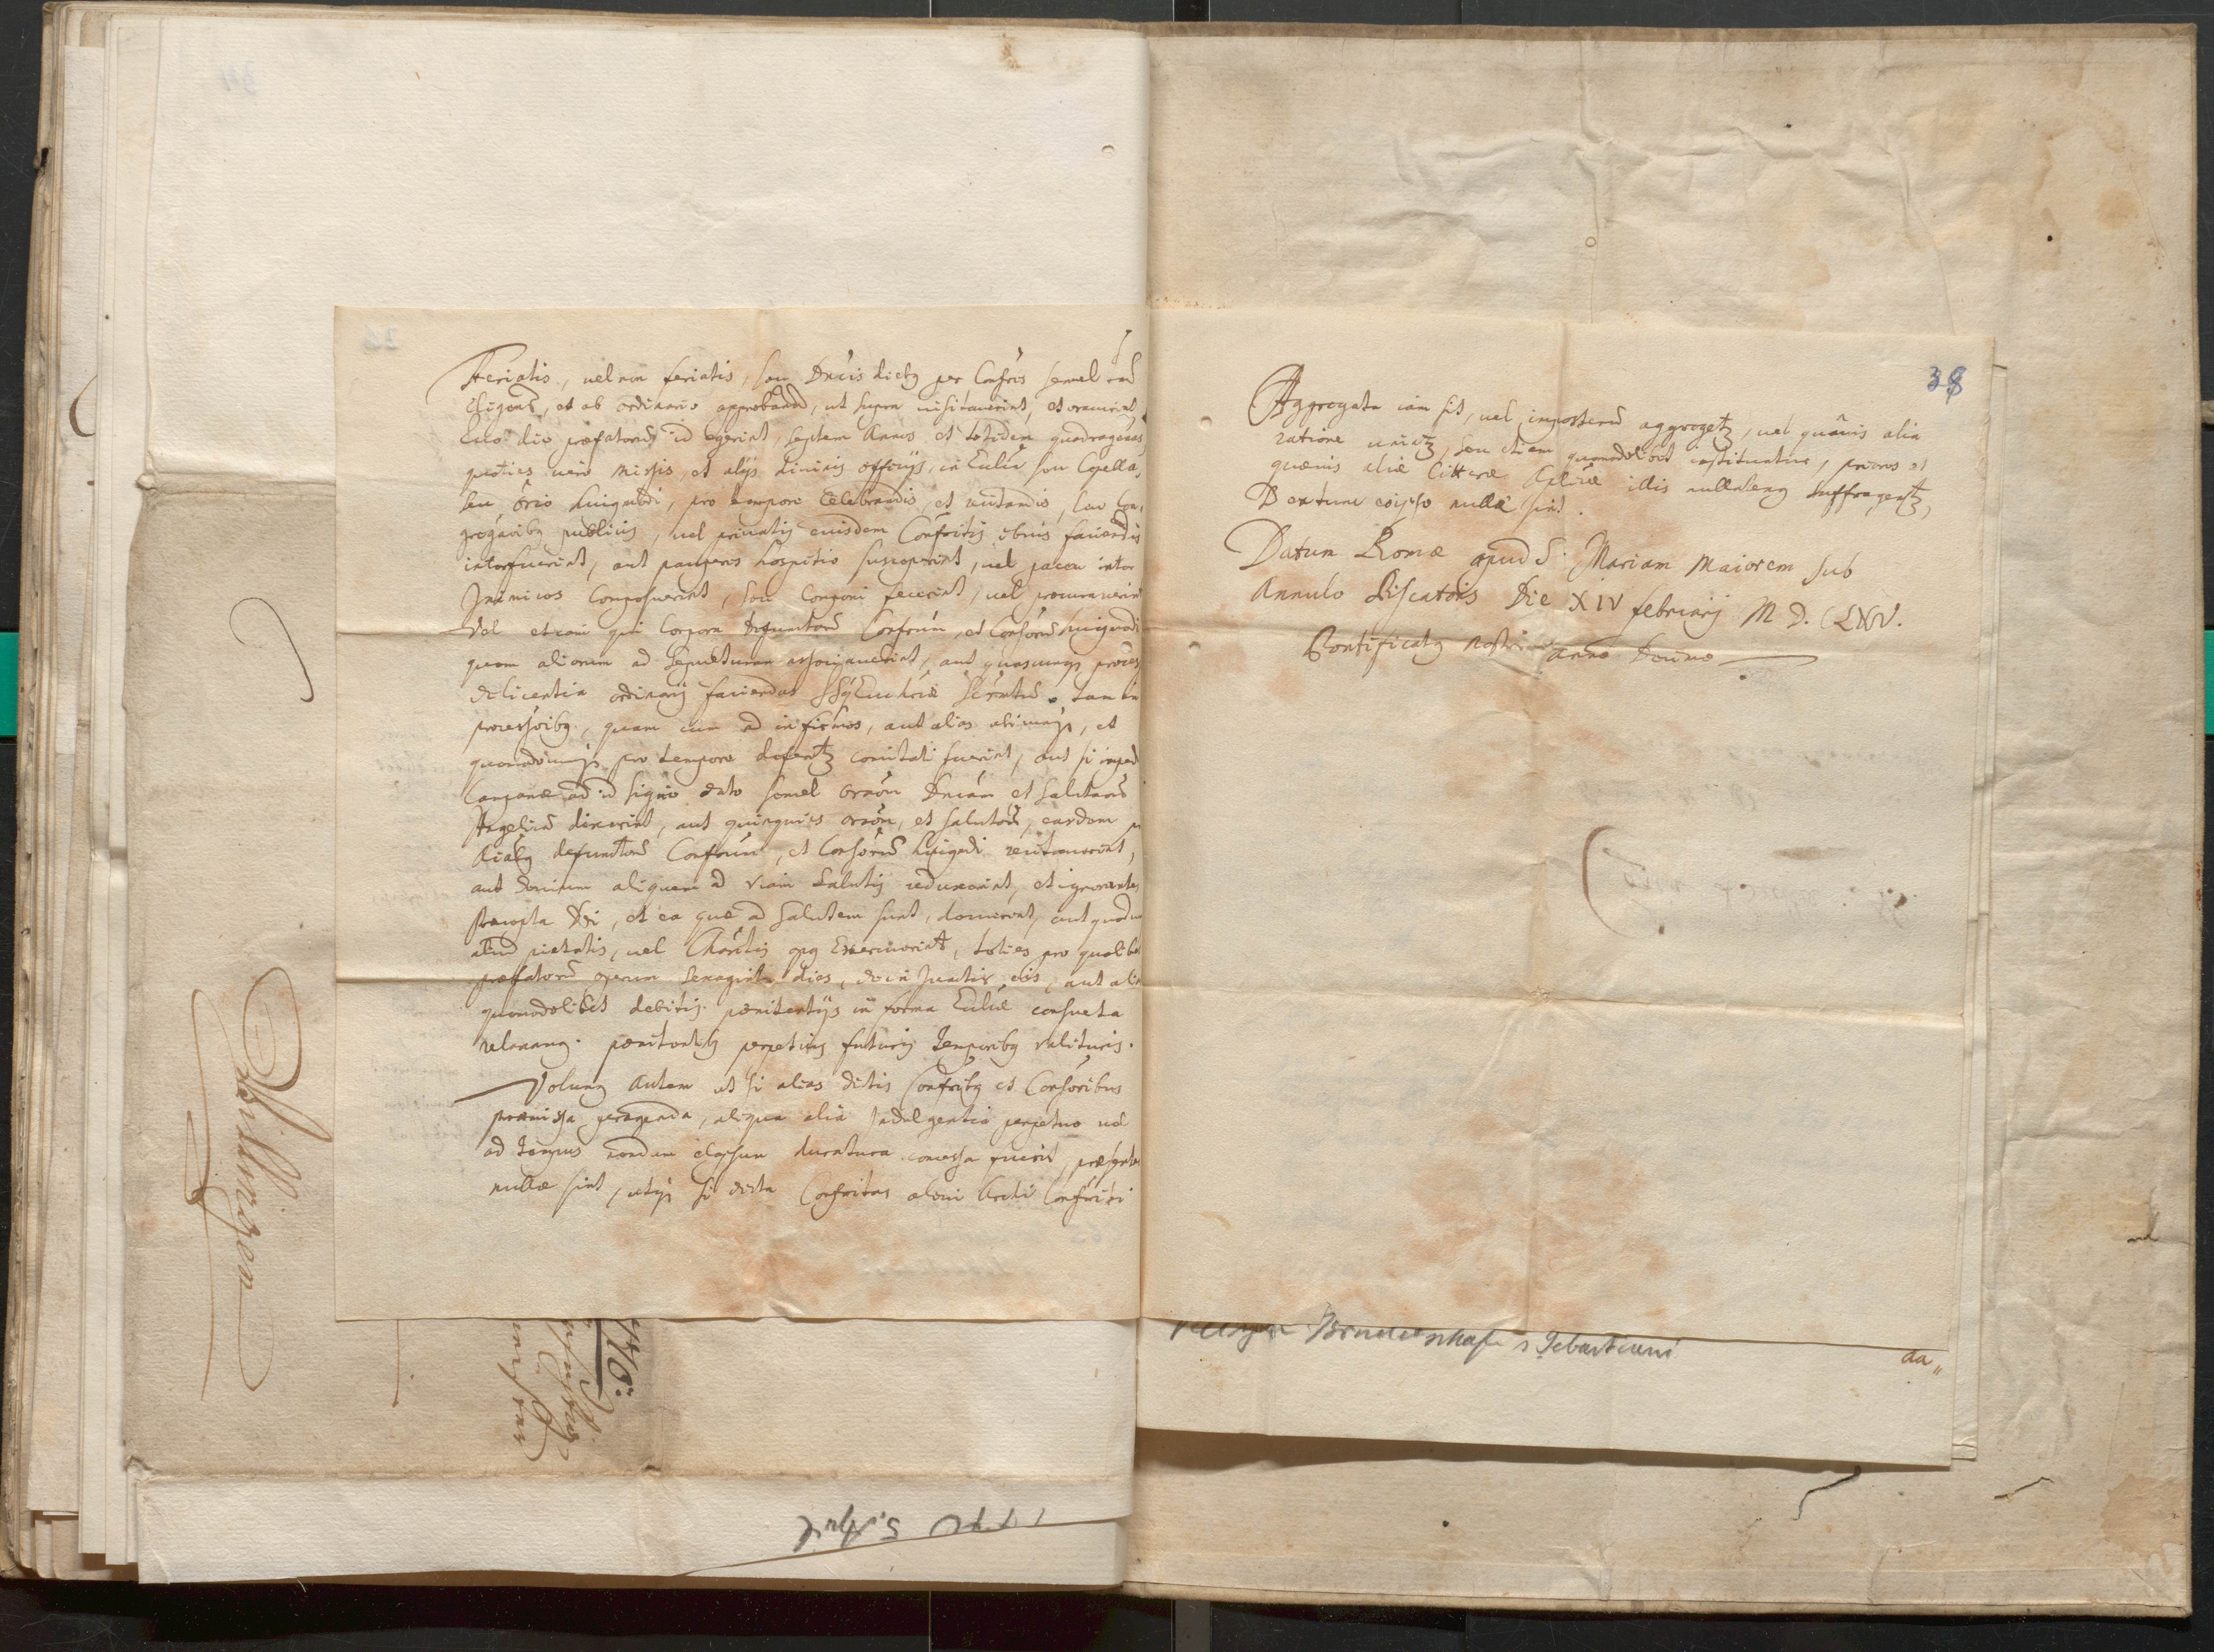 Feriatis, uel non feriatis, seu Dnicis diebg per Confres semel tm̃
Eligend, et ab ordinario approband, ut supra uisitauerint, et orauerint,
quo die præfatorũ id egerint, septem Annos et totidem quadragenas,
quoties uero missis, et alijs diuinis officijs, in Ecclia seu Capella,
seu Orio huigmodi, pro tempore Celebrandis, et recitandis, seu Con,
gregãnibg publicis, uel priuatis eiusdem Confritis ubiuis faciendis
interfuerint, aut pauperes hospitio susceperint, uel pacem inter
Inimicos Composuerint, seu Componi fecerint, uel procurauerint
Vel etiam qui Corpora Defunctorũ Confrum, et Consorũ huigmodi
quam aliorum ad sepulturam associauerint, aut quascunqs proces
de licentia ordinarij faciendas SSq̃ Euchriæ Scrmentũ tam in
processoibg, quam cum ad infirmos, aut alios ubicunqs, et
quomodocunqs pro tempore defertz comitati fuerint, aut si imped
Campanæ ad id signo dato semel oraõn Dnicam et salutaõnẽ
Angelicã dixerint, aut quinquies oraõn, et salutõn, easdem p
Aĩabg defunctorũ Confrum, et Consorũ huigmodi recitauerint,
aut Deuium aliquem ad Viam salutis reduxerint, et ignorantes
Præcepta Dei, et ea quæ ad salutem sunt, docuerint, aut quodcu
aliud pietatis, uel Charitis opg Exercuerint, toties pro quolibet
præfatorũ operum sexaginta dies, de in Junctis eis, aut alis
quomodolibet debitis pœnitentijs in forma Eccliæ consueta
relaxamg. præsentibg perpetuis futuris Temporibg valituris.
Volumg Autem ut si alias dictis Confribg et Consoribus
præmissa peragenda, aliqua alia Indulgentia perpetuo uel
ad Tempus nondum elapsum duratura concessa fuerit, præsentes
nullæ sint, utqs si dicta Confritas alicui Archi Confriti
38
Aggregata iam sit, uel imposterũ aggregetz, uel quauis alia
ratione uniatz, seu etiam quomodolibet instituatur, priores et
quæuis aliæ litteræ Aplicæ illis nullateng suffragentz,
sed ex tunc eoipso nullæ sint.
Datum Romæ apud S. Mariam Maiorem sub
Annulo Piscatoris Die XIV februarij M D. CLXV.
Pontificatg nostri anno Decimo
Bruderschaft s Sebastiani
aa
Dillingen